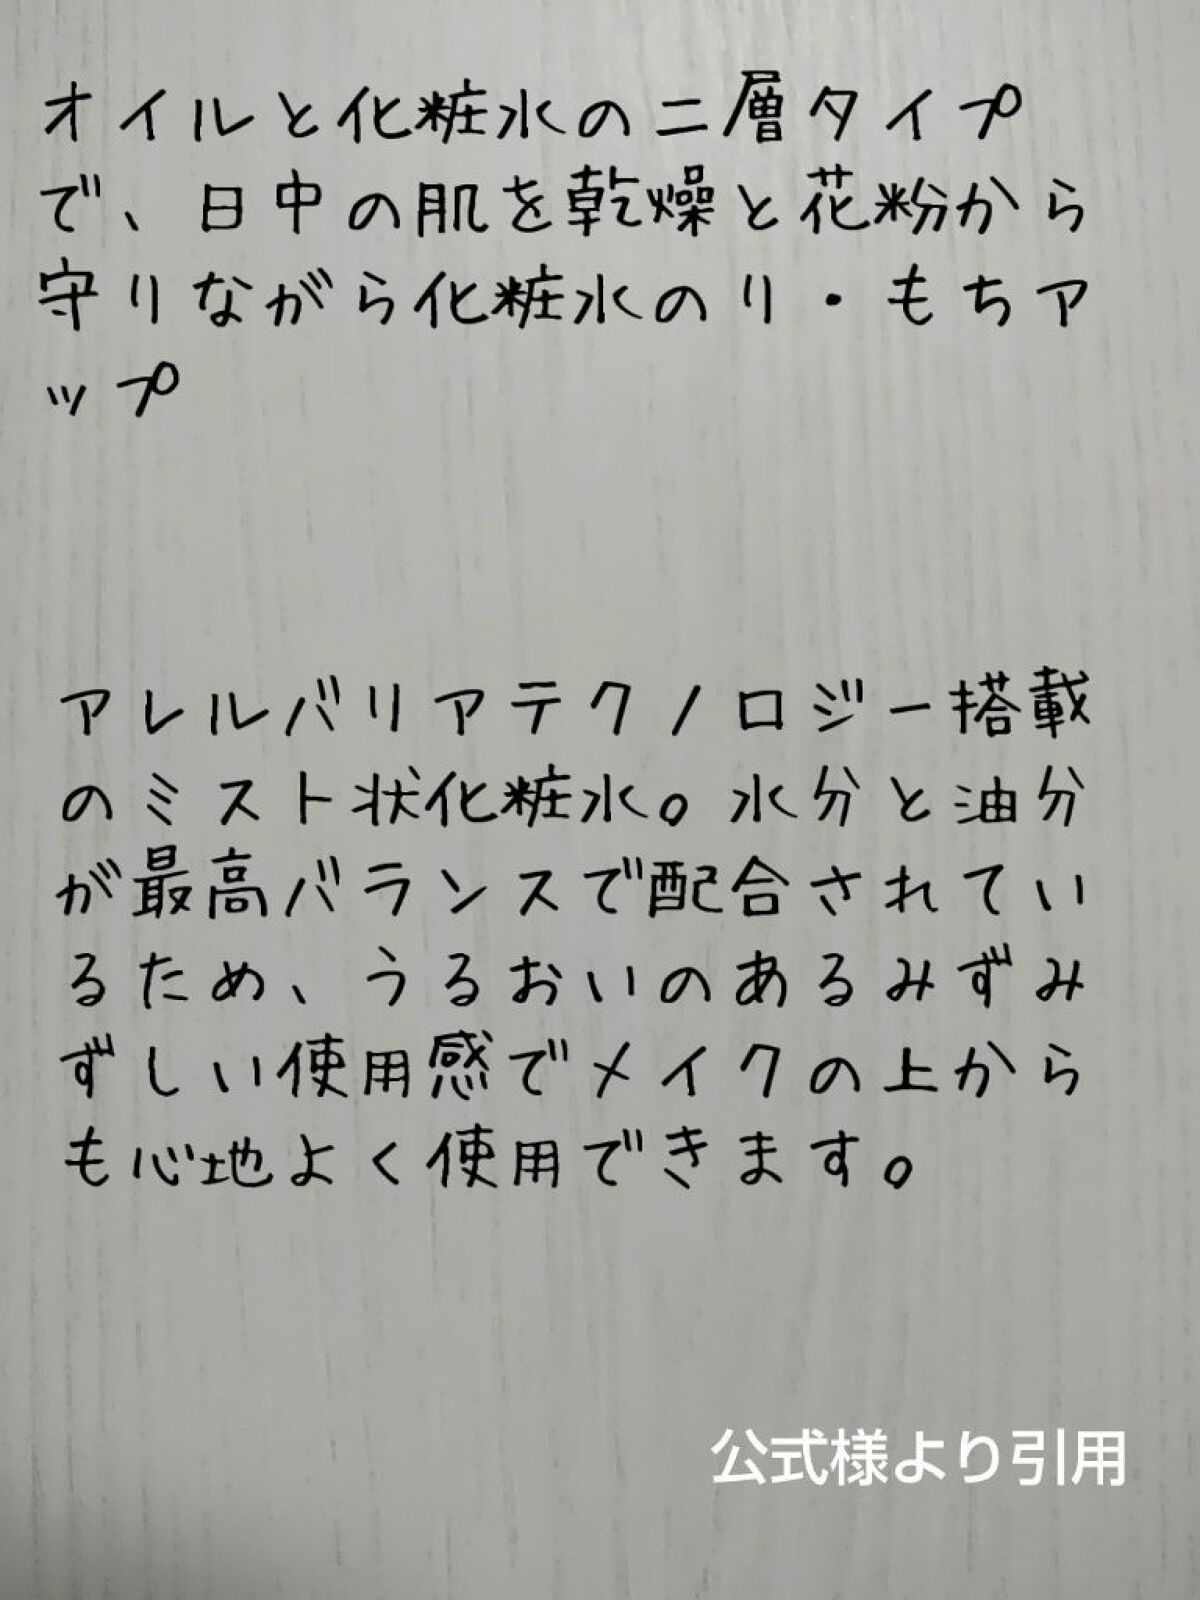 オイルと化粧水の二層タイプ
で、日中の肌を乾燥と花粉から
守りながら化粧水のり・もちア
ップ
アレルバリアテクノロジー搭載
のミスト状化粧水。水分と油分
が最高バランスで配合されてい
るため、うるおいのあるみずみ
ずしい使用感でメイクの上から
も心地よく使用できます。
公式様より引用